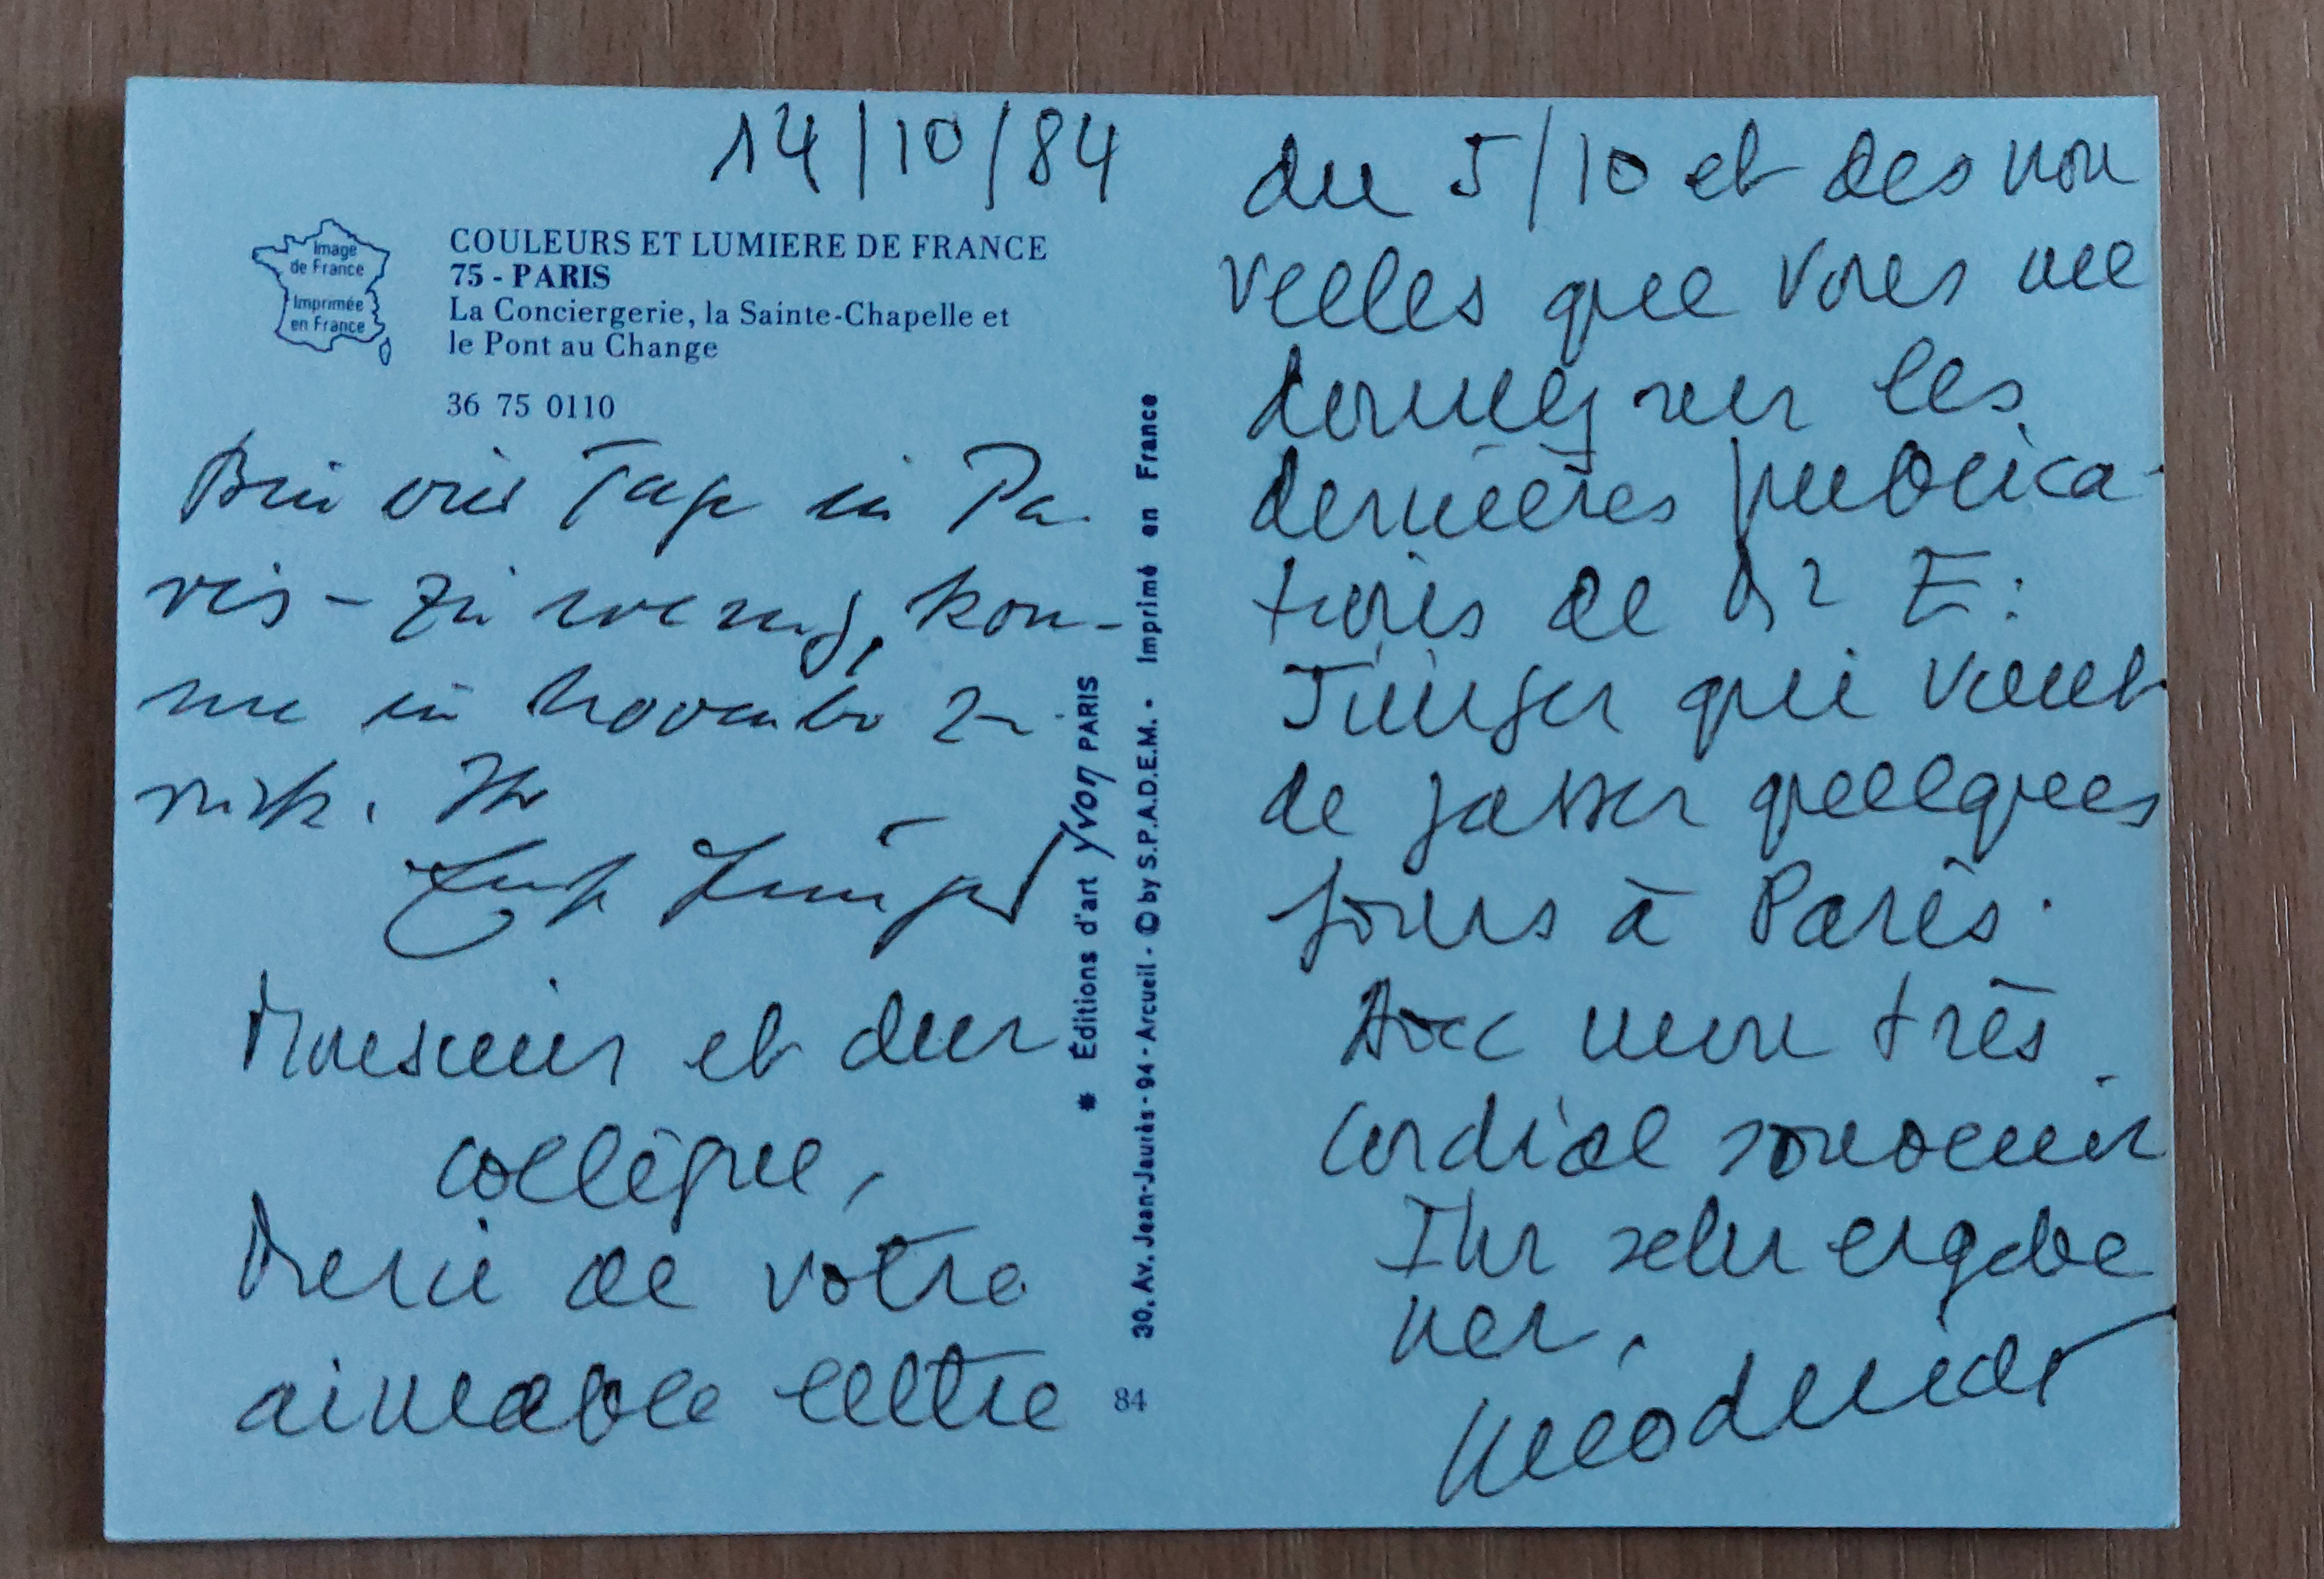 14/10/84
Image
de France
Imprimée
en France
COULEURS ET LUMIERE DE FRANCE
75 - PARIS
La Conciergerie, la Sainte-Chapelle et
le Pont au Change
36 75 0110
Bin vier Tage in Pa-
ris - zu wenig, kom-
me im November zu-
rück. Ihr
Ernst Jünger
Monsieur et cher
collègue,
Merci de votre
aimable lettre
✷ Éditions d'art Yvon PARIS
30, Av. Jean-Jaurès - 94 - Arcueil - © by S.P.A.D.E.M. - Imprimé en France
84
du 5/10 et des nou
velles que vous me
donnez sur les
dernières publica-
tions de E.
Jünger qui vient
de passer quelques
jours à Paris.
Avec mon très
cordial souvenir
Ihr sehr ergebe
ner,